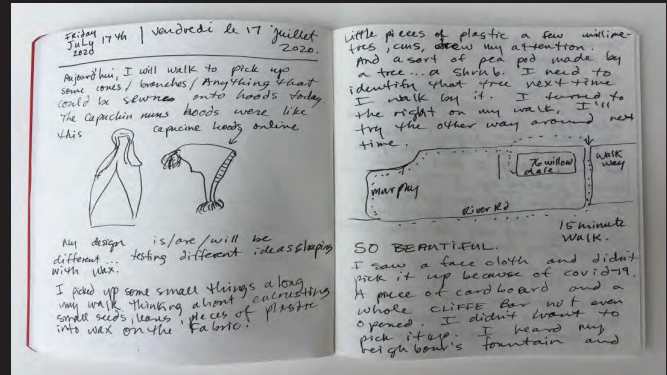 Friday
July 17th
2020
Vendredi le 17 juillet
2020.
Aujourd'hui, I will walk to pick up
some cones/branches/Anything that
could be sewn onto hoods today.
The Capuchin nuns hoods were like
this capucine hoods online
My design is/are/will be
different... testing different ideas shaping
with wax.
I picked up some small things along
my walk. thinking about encrusting
small seeds, leaves, pieces of plastic
into wax on the fabric.
Little pieces of plastic a few millime-
tres, cms, drew my attention.
And a sort of pea pod made by
a tree... a shrub. I need to
identify that tree next time
I walk by it. I turned to
the right on my walk, I'll
try the other way around next
time.
76 willow
dale
walk
way
murphy
River Rd
15 minute
walk.
SO BEAUTIFUL.
I saw a face cloth and didn't
pick it up because of covid-19.
A piece of cardboard and a
whole CLIFFE Bar not even
opened. I didn't want to
pick it up. I heard my
neighbour's fountain and